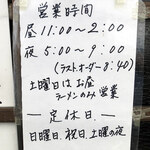 営業時間
昼 11:00〜2:00
夜 5:00〜9:00
(ラストオーダー8:40)
土曜日はお昼
ラーメンのみ営業
ー定休日ー
日曜日.祝日.土曜の夜